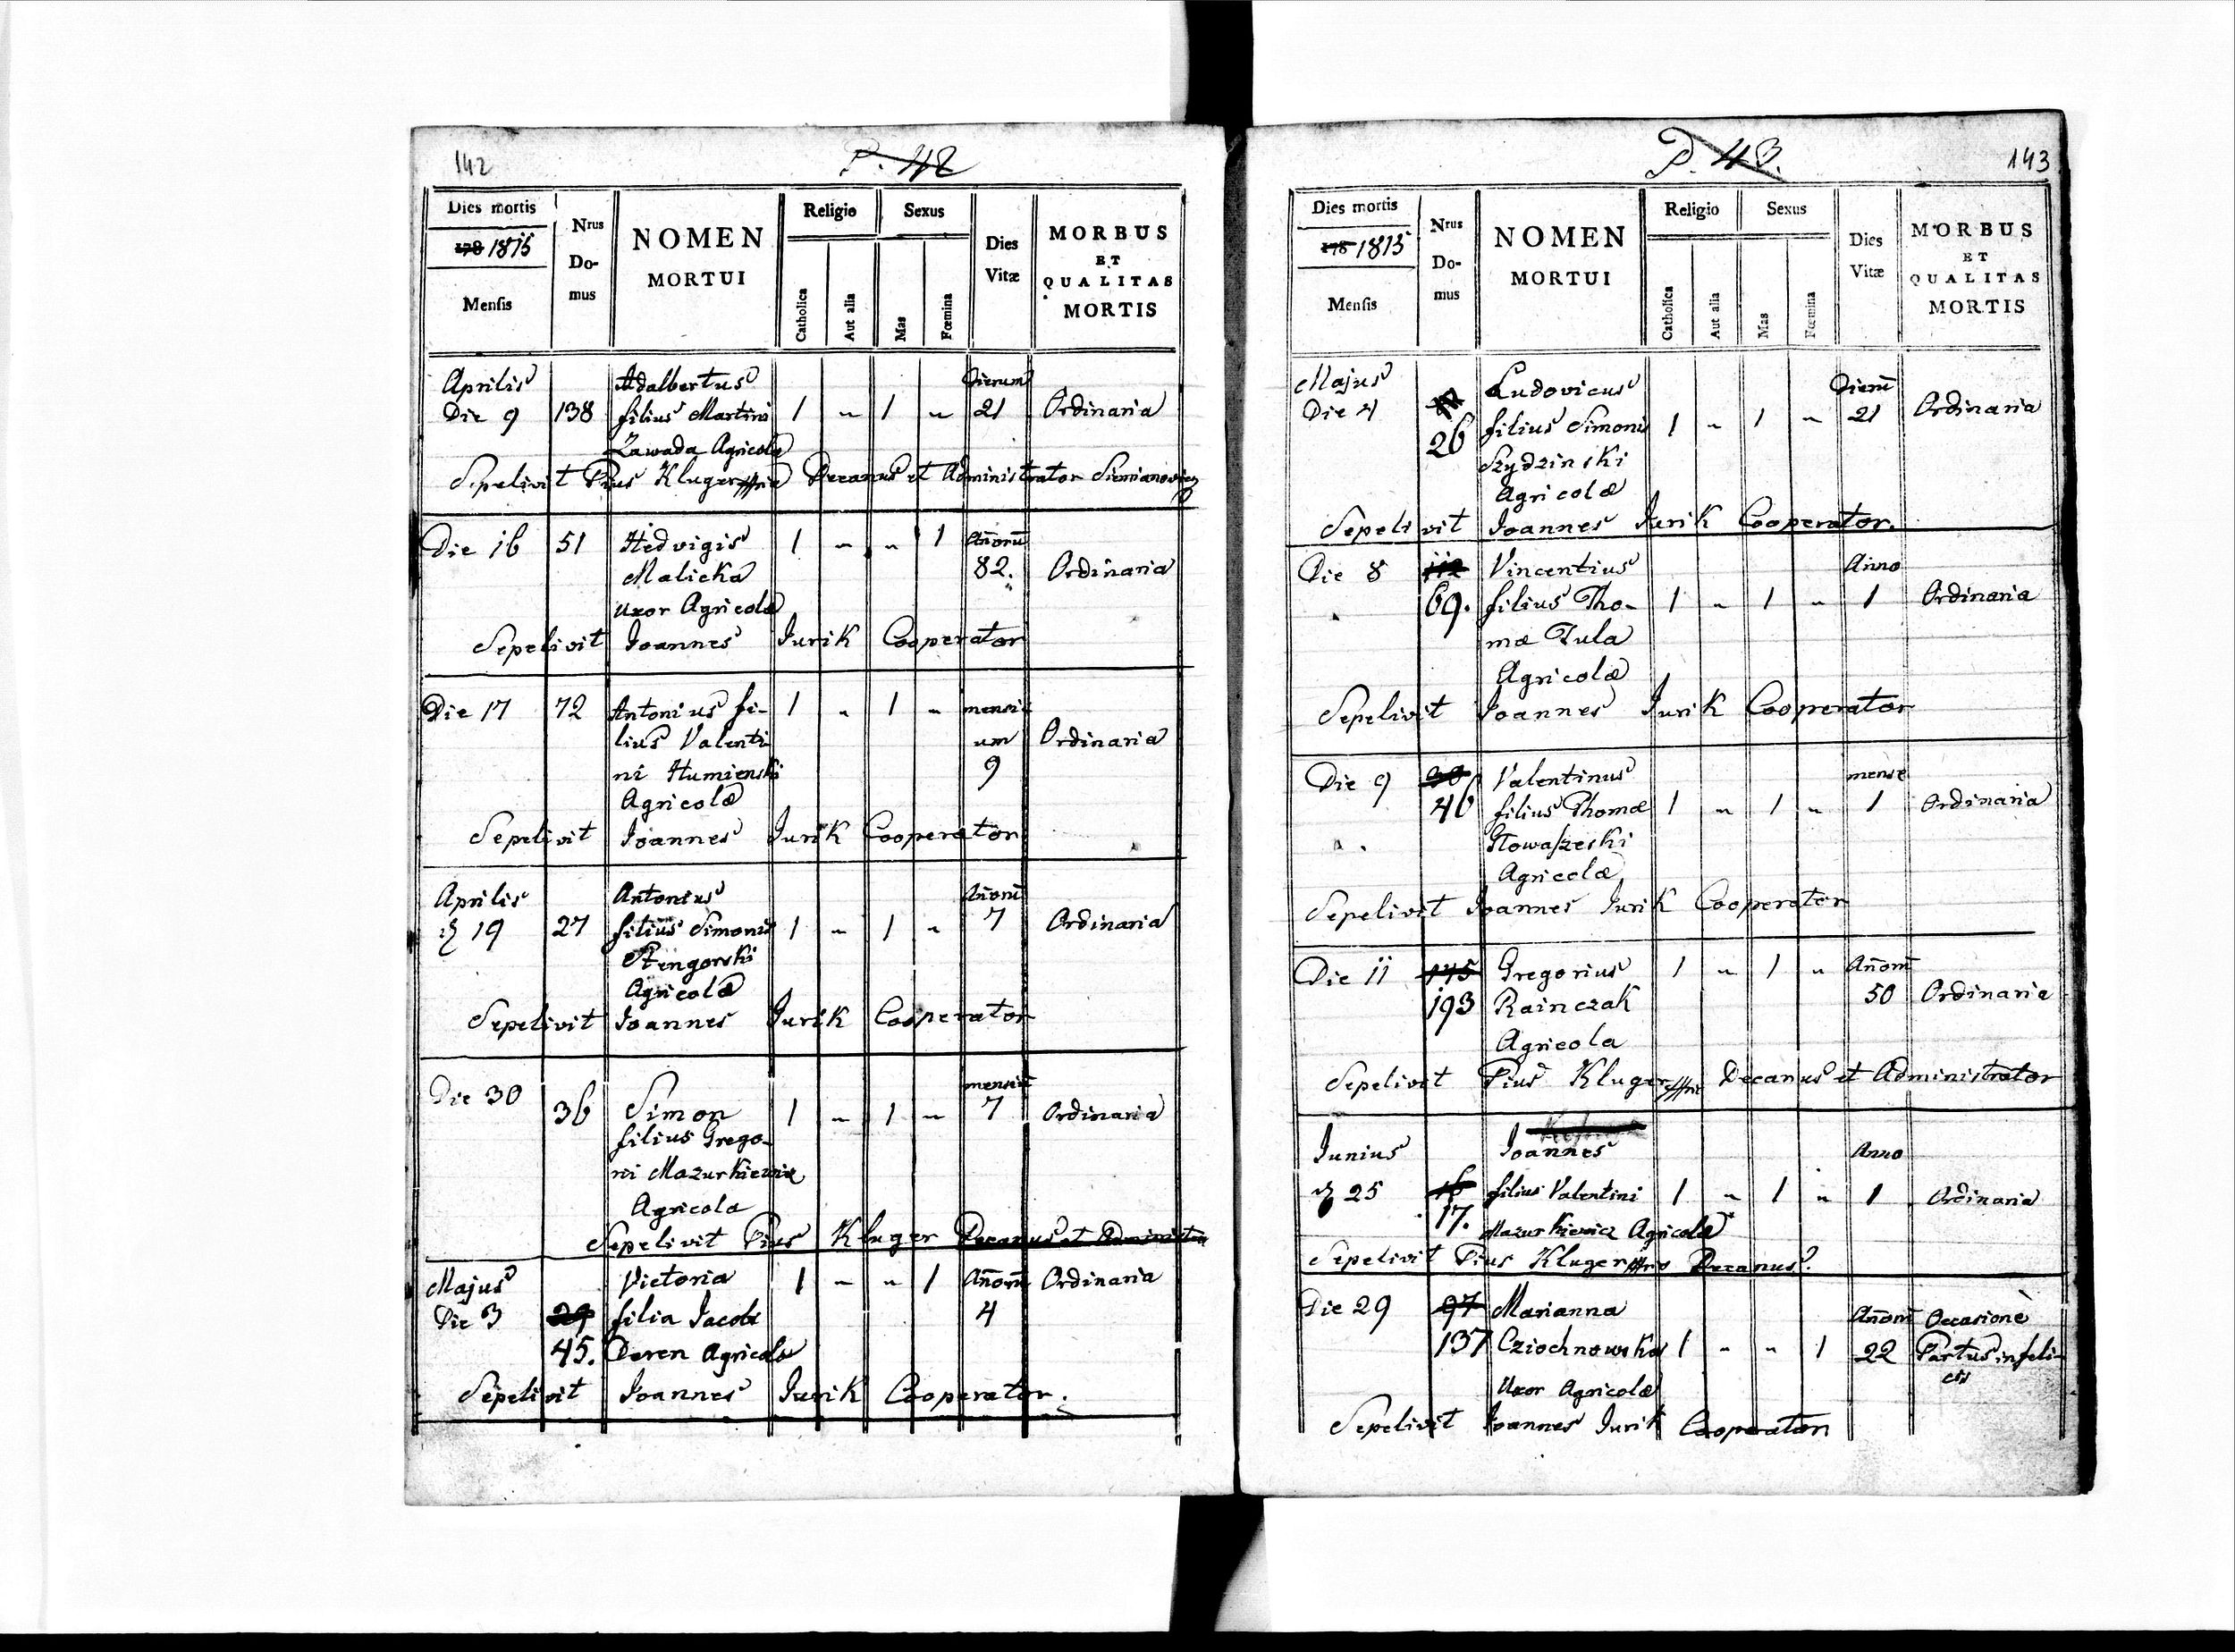 142
P. 42
Dies mortis
178 1815
Mensis
Nrus
Do-
mus
NOMEN
MORTUI
Religio
Catholica
Aut alia
Sexus
Mas
Fœmina
Dies
Vitæ
MORBUS
ET
QUALITAS
MORTIS
Aprilis Adalbertus Dierum
Die 9 138 filius Martini 1 „ 1 „ 21 Ordinaria
Zawada Agricolæ
Sepelivit Pius Kluger Decanus et Administrator
Die 16 51 Hedvigis 1 „ „ 1 Añorū
Malicka 82. Ordinaria
Uxor Agricolæ
Sepelivit Joannes Jurik Cooperator
Die 17 72 Antonius fi- 1 „ 1 „ mensi-
lius Valenti um Ordinaria
ni Humienski 9
Agricolæ
Sepelivit Joannes Jurik Cooperator
Aprilis Antonius Añorū
19 27 filius Simonis 1 „ 1 „ 7 Ordinaria
Agricolæ
Sepelivit Joannes Jurik Cooperator
Die 30 mensiū
36 Simon 1 „ 1 „ 7 Ordinaria
filius Grego-
rii Mazurkiewicz
Agricola
Sepelivit Pius Kluger Decanus et
Majus Victoria 1 „ „ 1 Añorū Ordinaria
Die 3 29 filia Jacobi 4
45. Deren Agricolæ
Sepelivit Joannes Jurik Cooperator.
P. 43.
143
Dies mortis
178 1815
Mensis
Nrus
Do-
mus
NOMEN
MORTUI
Religio
Catholica
Aut alia
Sexus
Mas
Fœmina
Dies
Vitæ
MORBUS
ET
QUALITAS
MORTIS
Majus Ludovicus Dierū
Die 4 filius Simonis 1 „ 1 „ 21 Ordinaria
26 Szydzinski
Agricolæ
Sepelivit Joannes Jurik Cooperator.
Die 8 112 Vincentius Anno
69. filius Tho- 1 „ 1 „ 1 Ordinaria
mæ Tula
Agricolæ
Sepelivit Joannes Jurik Cooperator
Die 9 Valentinus mense
46 filius Thomæ 1 „ 1 „ 1 Ordinaria
Agricolæ
Sepelivit Joannes Jurik Cooperator
Die 11 145 Gregorius 1 „ 1 „ Añorū
193 Rainczak 50 Ordinaria
Agricola
Sepelivit Pius Kluger Decanus et Administrator
Junius Joannes Anno
25 16 filius Valentini 1 „ 1 „ 1 Ordinaria
17. Mazurkiewicz Agricolæ
Sepelivit Pius Kluger Decanus
Die 29 97 Marianna Añorū Occasione
137 Cziochnowska 1 „ „ 1 22 Partus infeli-
Uxor Agricolæ cis
Sepelivit Joannes Jurik Cooperator